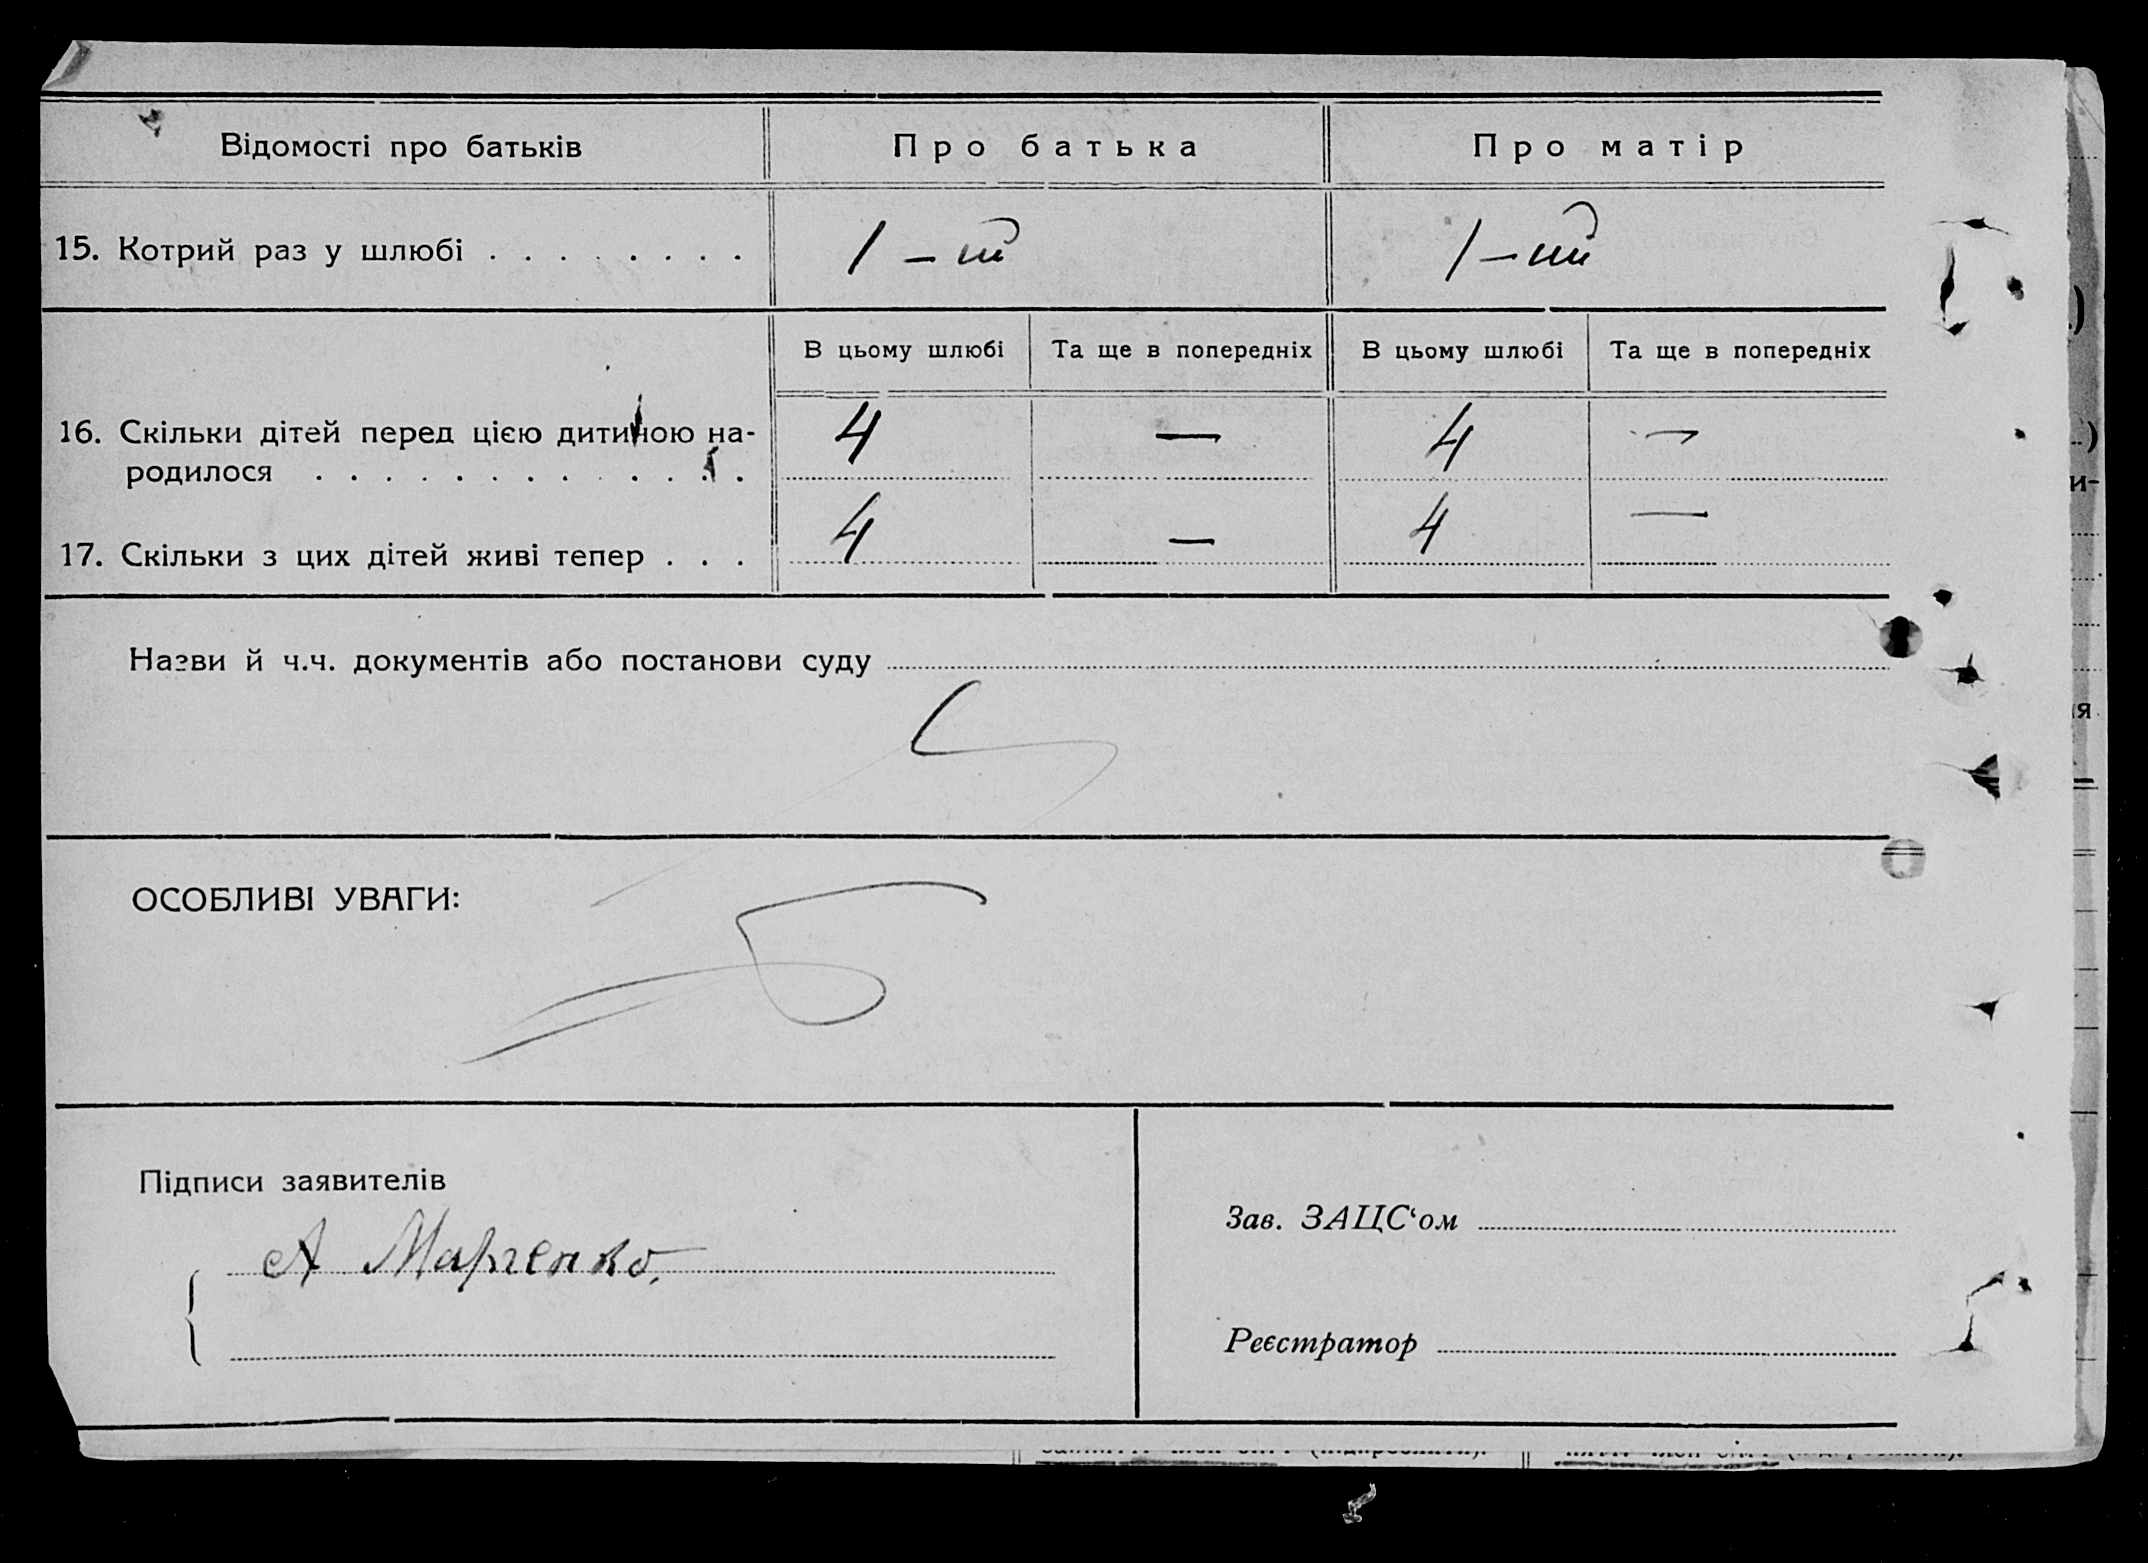 Відомості про батьків Про батька Про матір
15. Котрий раз у шлюбі . . . . . . . . 1 – ий 1 – ий
В цьому шлюбі Та ще в попередніх В цьому шлюбі Та ще в попередніх
16. Скільки дітей перед цією дитиною на- 4 — 4 —
родилося . . . . . . . . . . . . .
17. Скільки з цих дітей живі тепер . . . 4 — 4 —
Назви й ч.ч. документів або постанови суду
ОСОБЛИВІ УВАГИ:
Підписи заявителів
Зав. ЗАЦС‘ом
А Марченко.
Реєстратор